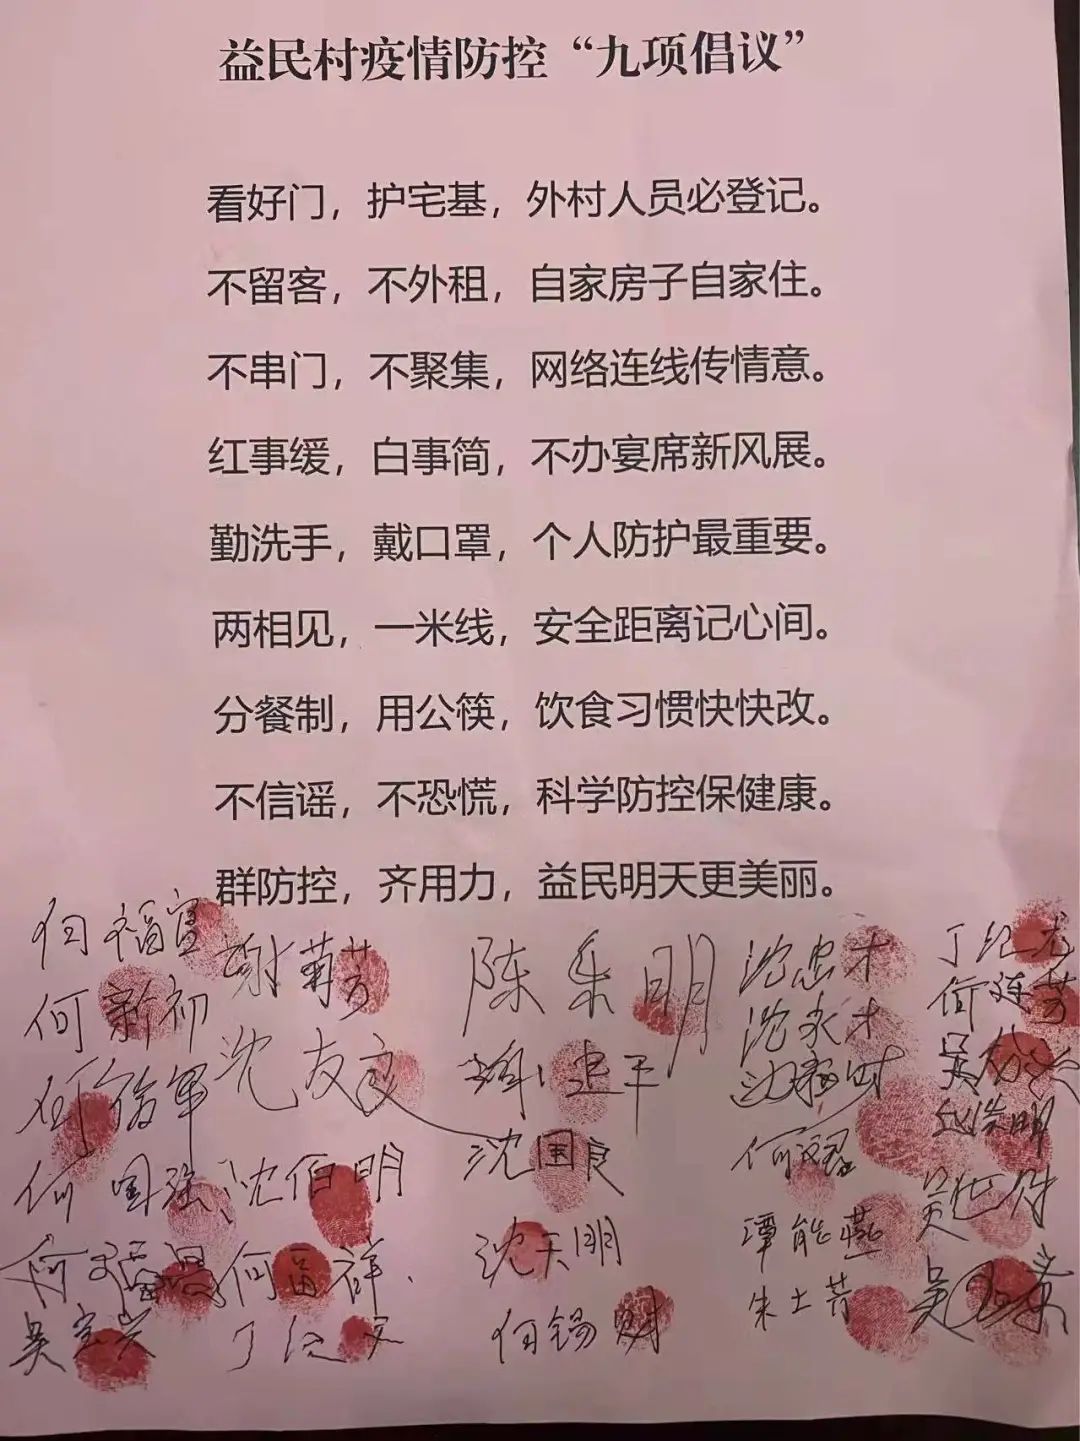 益民村疫情防控“九项倡议”
看好门，护宅基，外村人员必登记。
不留客，不外租，自家房子自家住。
不串门，不聚集，网络连线传情意。
红事缓，白事简，不办宴席新风展。
勤洗手，戴口罩，个人防护最重要。
两相见，一米线，安全距离记心间。
分餐制，用公筷，饮食习惯快快改。
不信谣，不恐慌，科学防控保健康。
群防控，齐用力，益民明天更美丽。
何福官 谢菊芳 陈乐明 沈忠才 丁纪龙
何新初 沈友良 沈永才 何连芳
何国强 沈伯明 沈国良
何留祥 沈天明 谭能燕
吴宝兴 何锡财 朱士芳